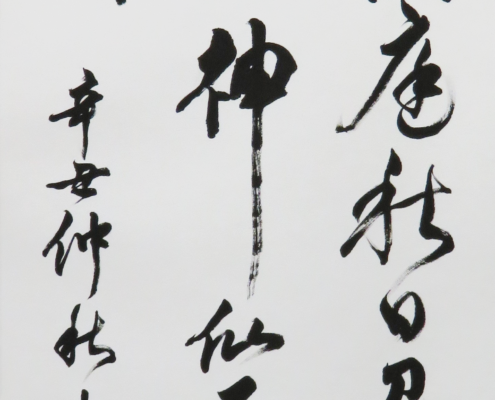 庭秋日
神仙
辛丑仲秋